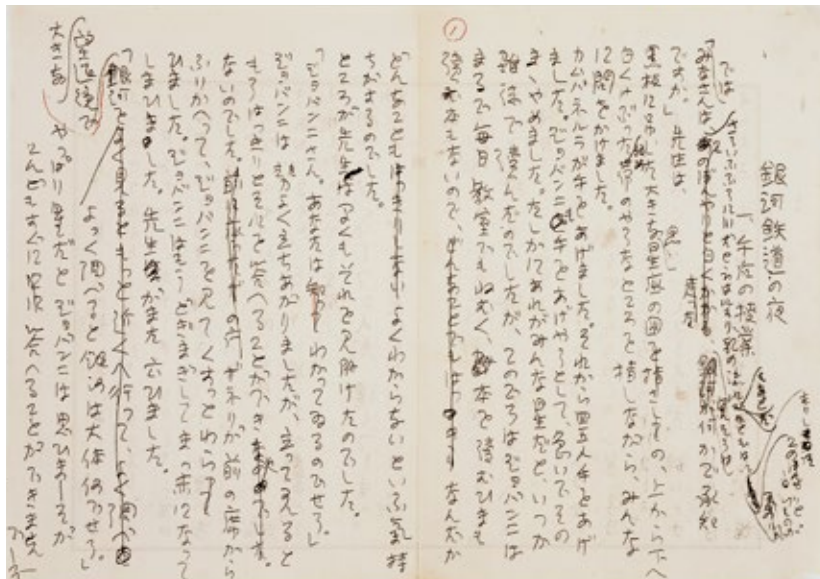 ①
銀河鉄道の夜
一、午后の授業
「ではみなさんは、さういふふうに川だと云はれたり、乳の流れたあとだと
ですか。」先生は、
黒板に吊した大きな黒い星座の図の、上から下へ
白くけぶった銀河帯のやうなところを指しながら、みんな
に問をかけました。
カムパネルラが手をあげました。それから四五人手をあげ
ました。ジョバンニも手をあげやうとして、急いでその
まゝやめました。たしかにあれがみんな星だと、いつか
雑誌で読んだのでしたが、このごろはジョバンニは
まるで毎日教室でもねむく、本を読むひまも
読む本もないので、なんだか
どんなこともよくわからないといふ気持
ちがするのでした。
ところが先生は早くもそれを見附けたのでした。
「ジョバンニさん。あなたはわかってゐるのでせう。」
ジョバンニは勢よく立ちあがりましたが、立って見ると
もうはっきりとそれを答へることができ
ないのでした。ザネリが前の席から
ふりかへって、ジョバンニを見てくすっとわらひ
ました。ジョバンニはもうどぎまぎしてまっ赤になって
しまひました。先生がまた云ひました。
「大きな望遠鏡で銀河をよっく調べると銀河は大体何でせう。」
やっぱり星だとジョバンニは思ひましたが
こんどもすぐに答へることができません